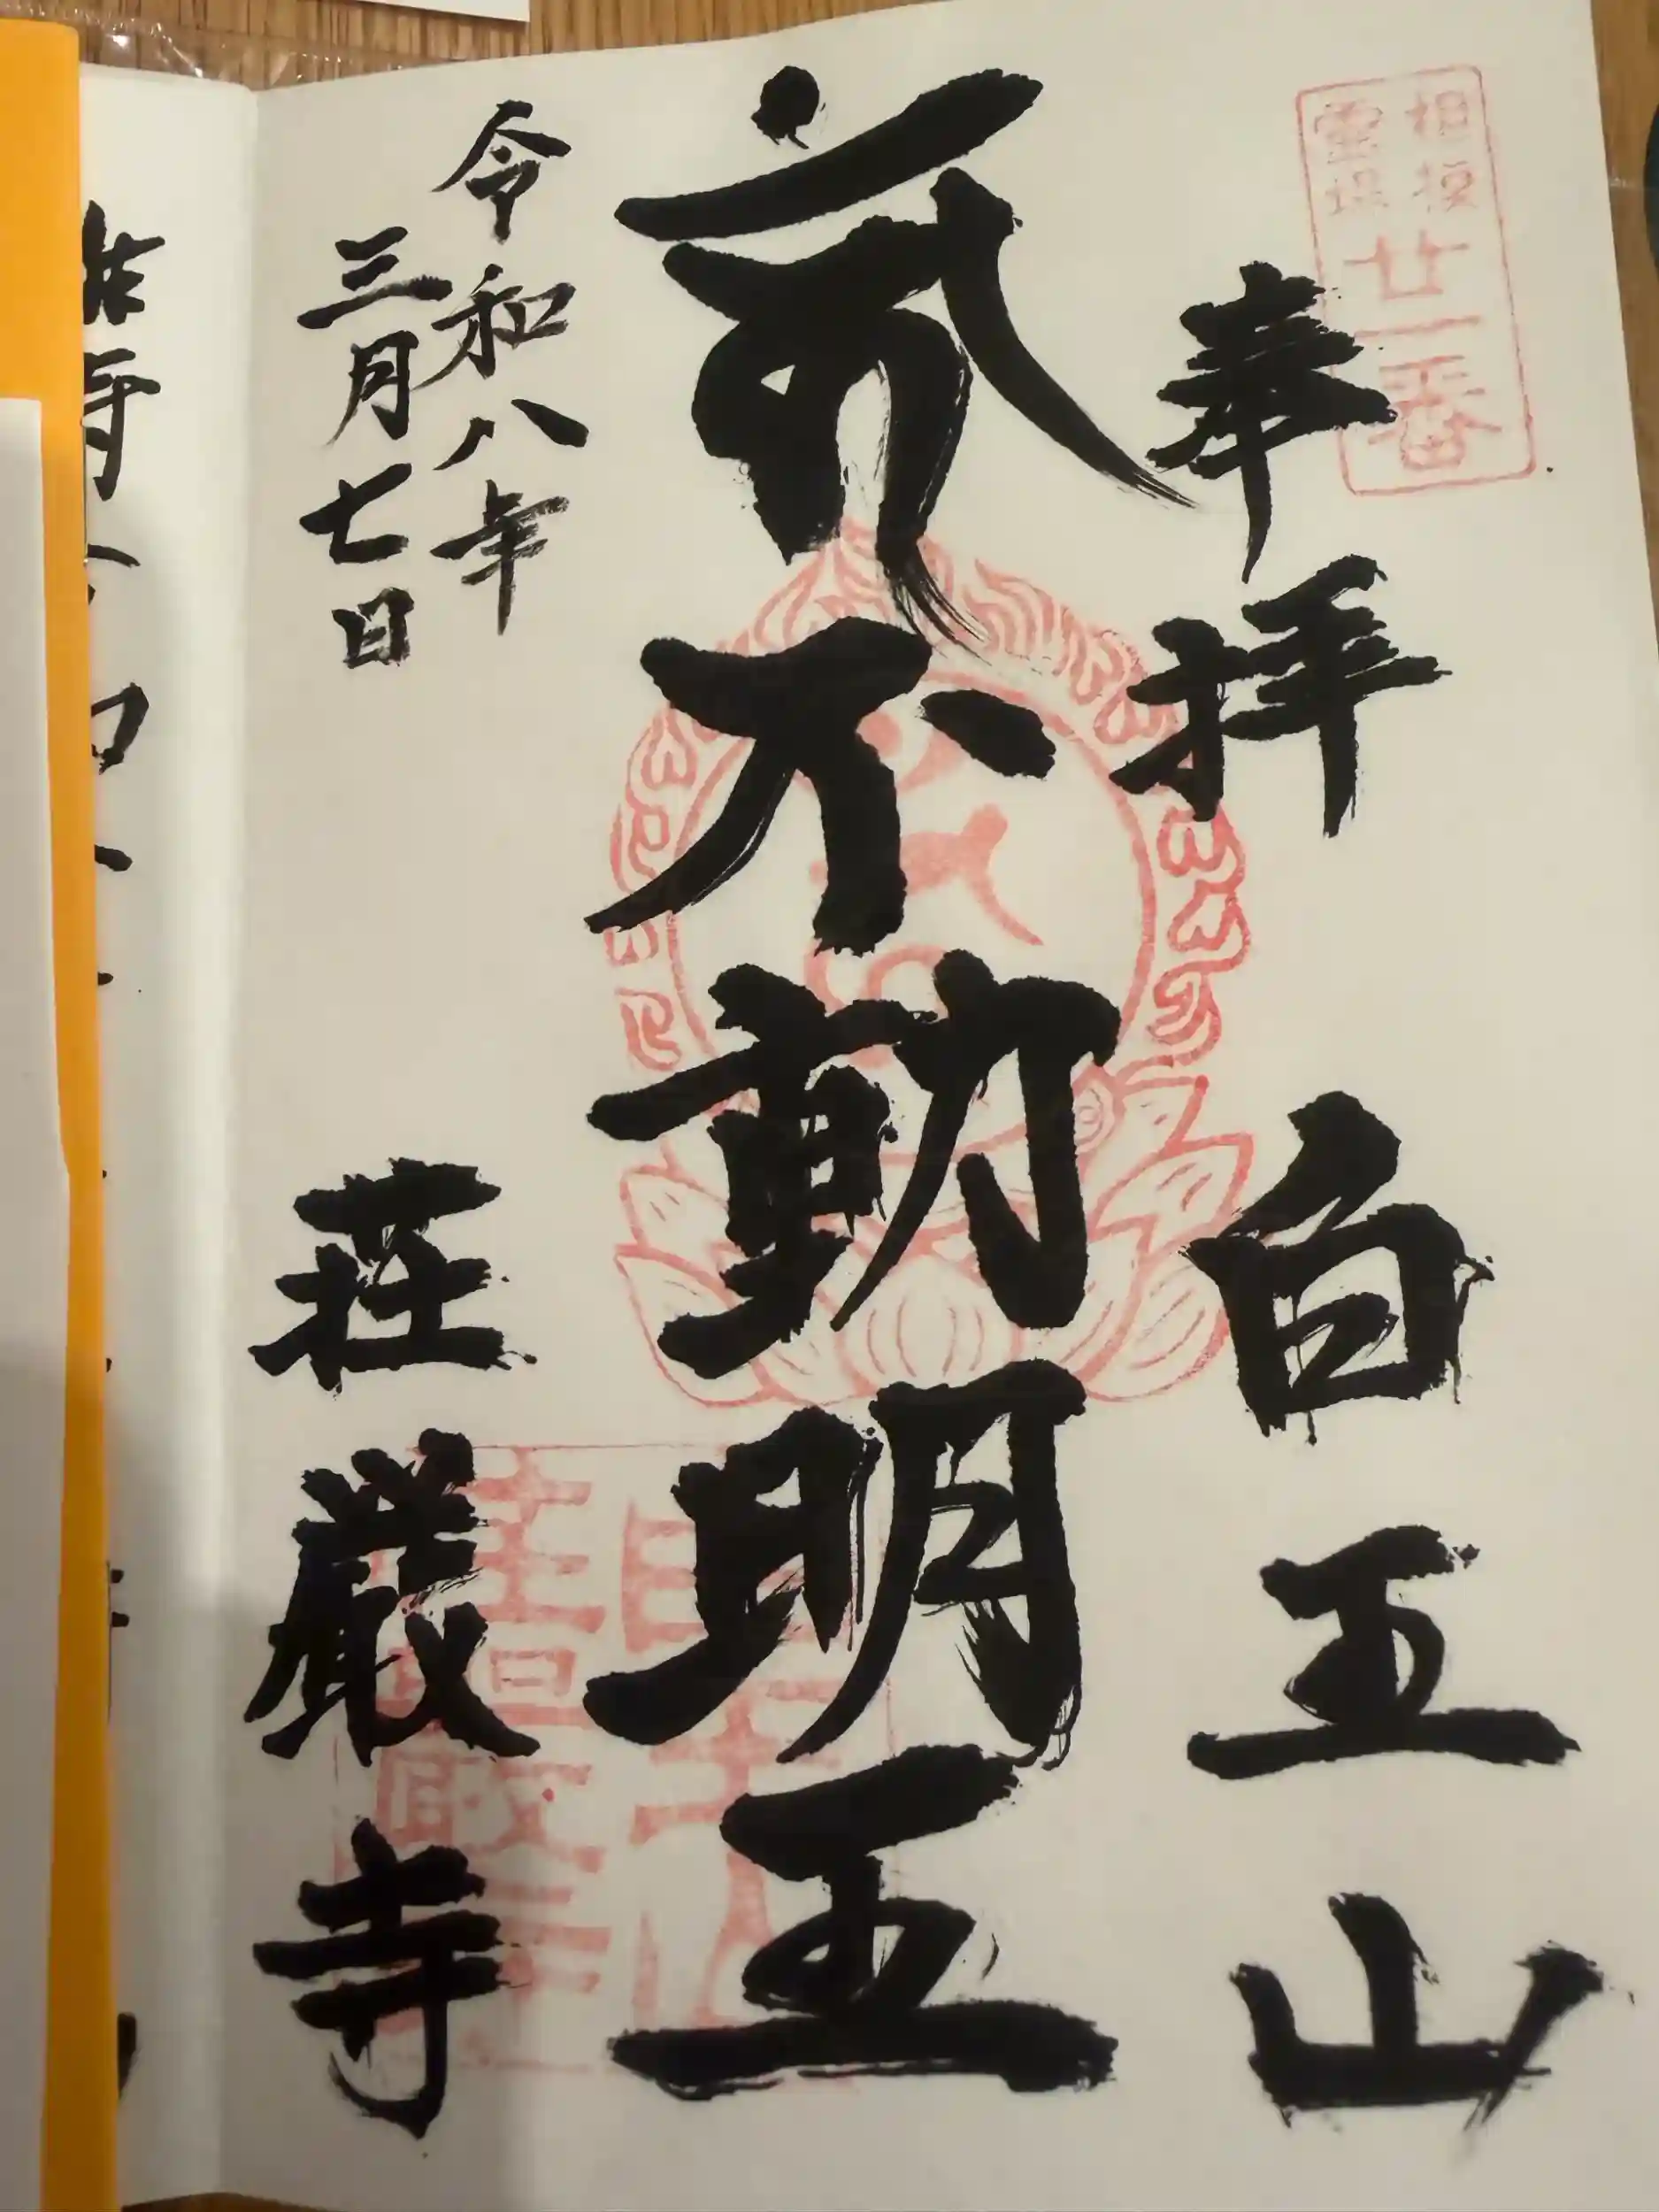 相模
霊場
廿一番
奉拝
白王山
不動明王
令和八年
三月七日
荘厳寺